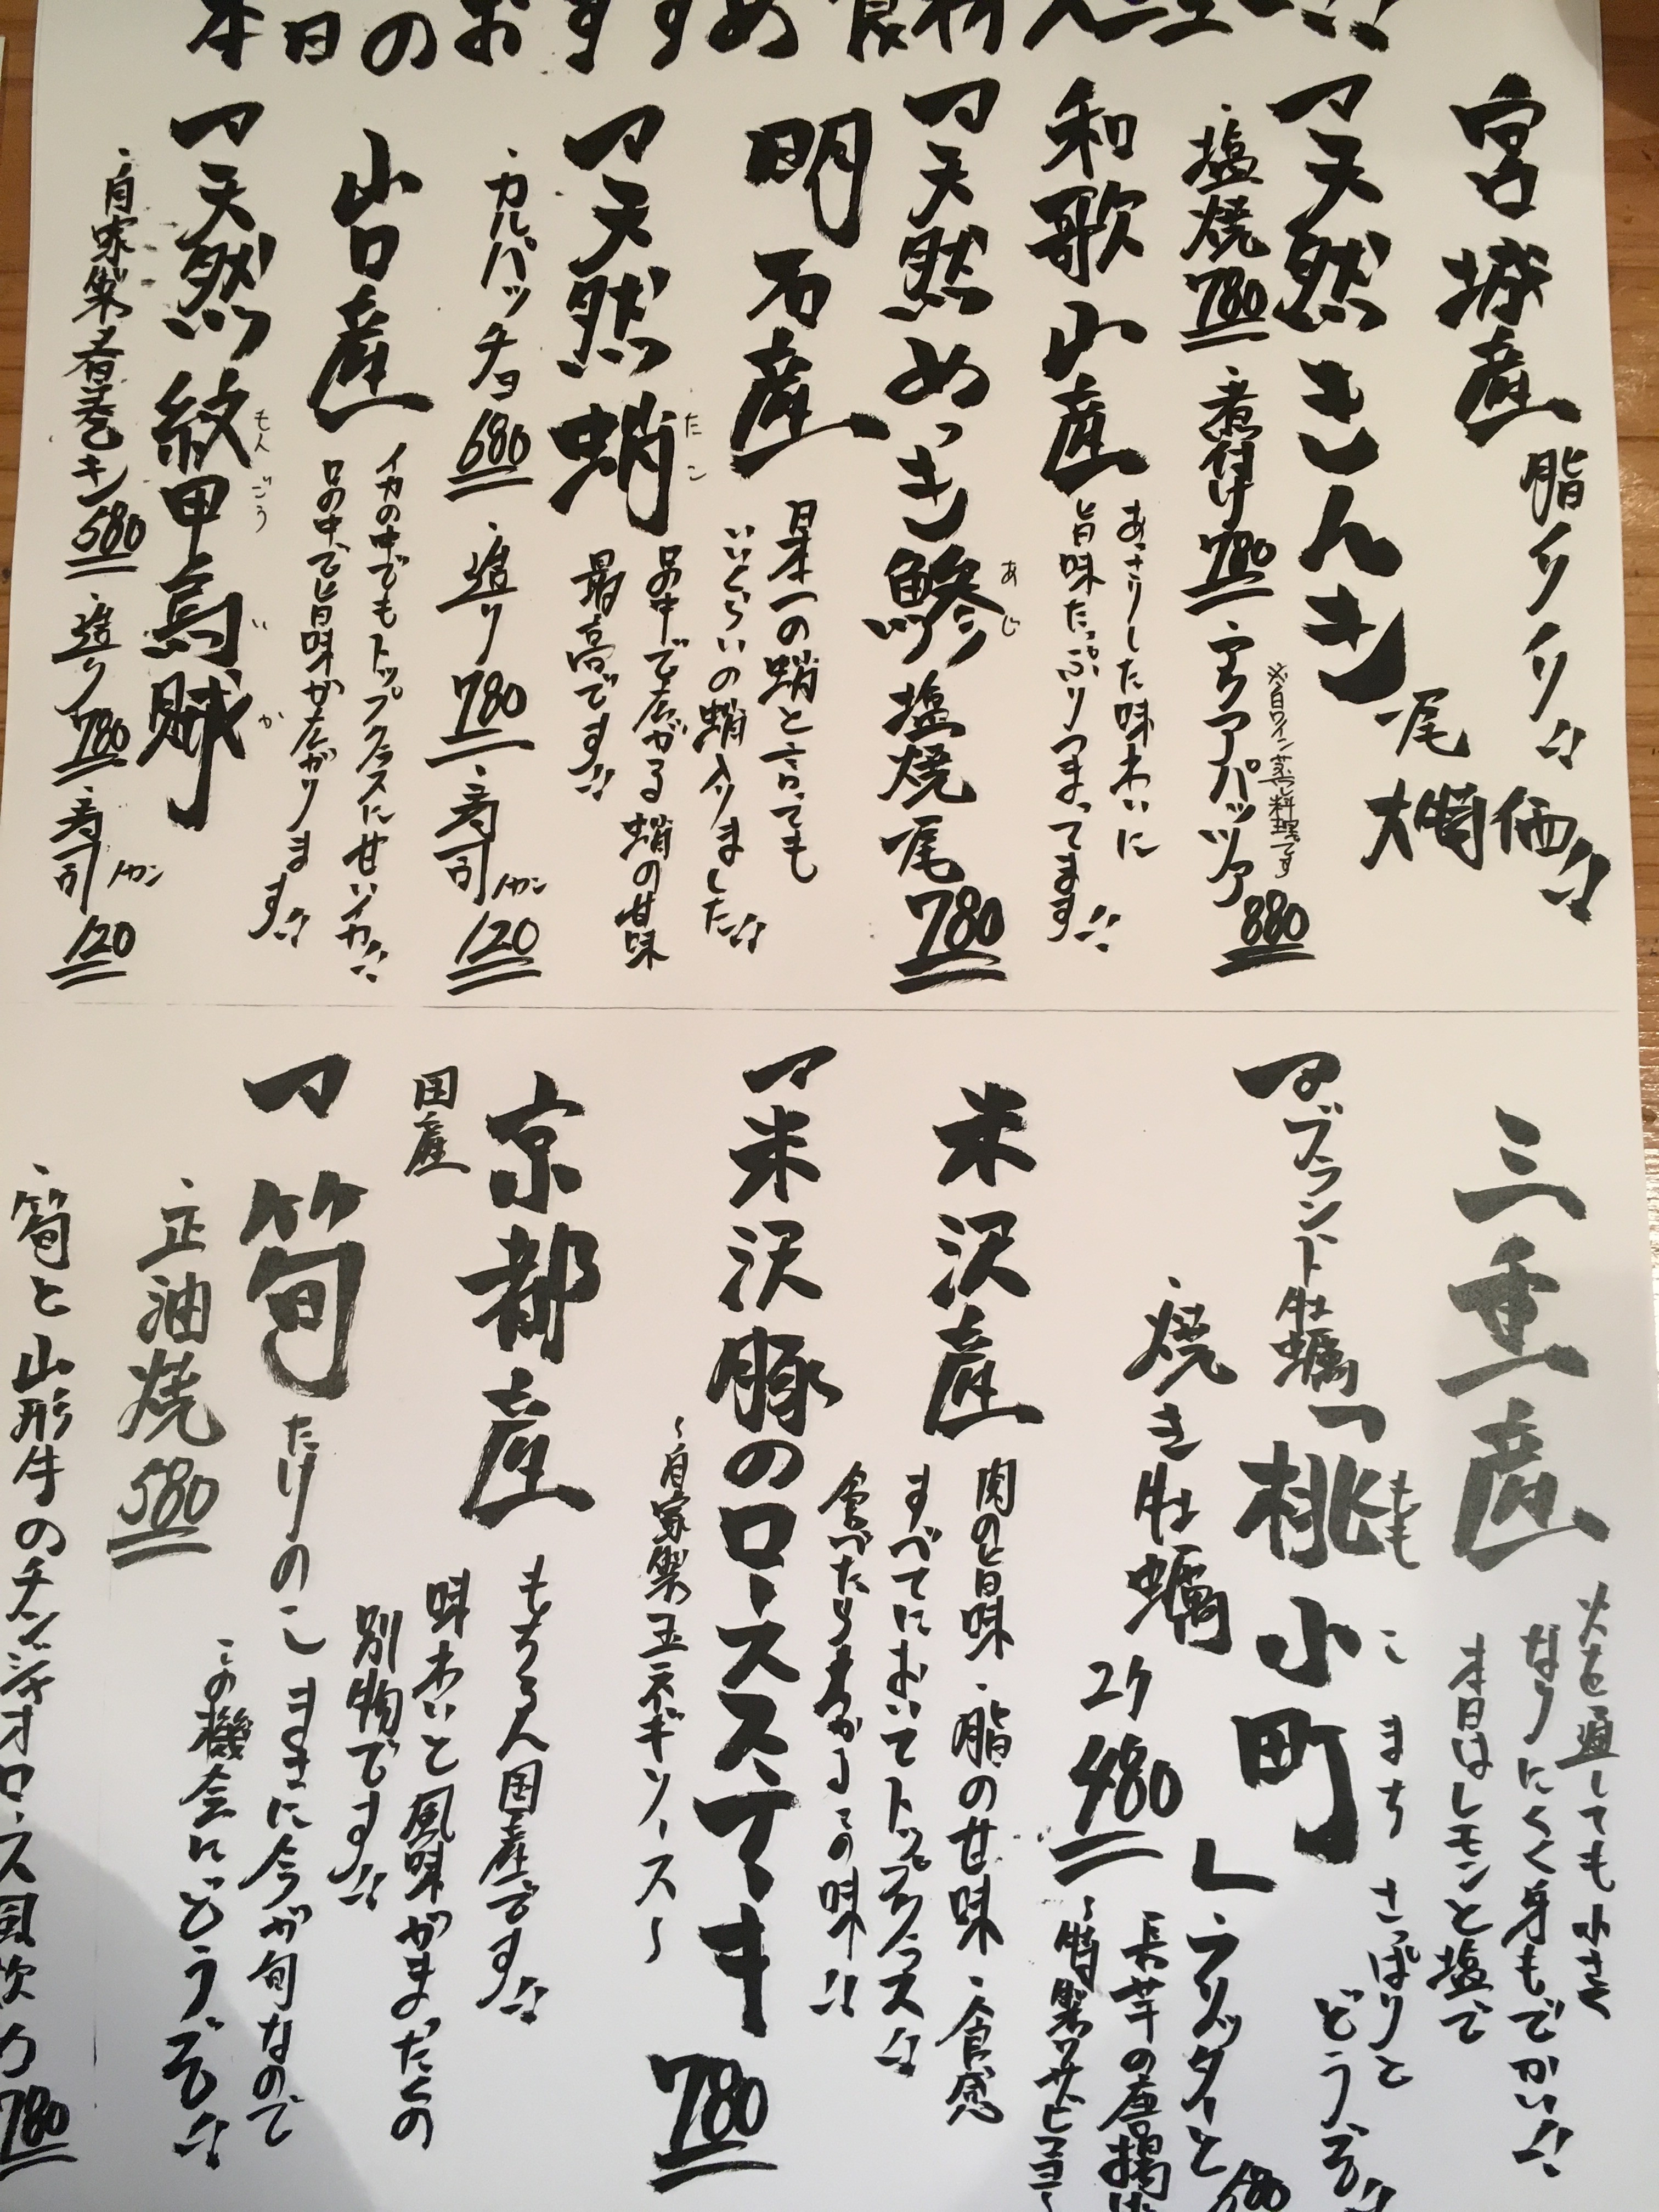 本日のおすすめ食材入荷!!
宮城産
脂ノリノリ!!
天然きんき
一尾
大特価!!
・塩焼780・煮付け780・アクアパッツァ880
※白ワイン蒸し料理です
和歌山産
あっさりした味わいに
旨味たっぷりつまってます!!
天然めっき鯵塩焼一尾780
あじ
明石産
日本一の蛸と言っても
いいぐらいの蛸入りました!!
口の中で広がる蛸の甘味
最高です!!
天然蛸
たこ
・カルパッチョ680・造り780・寿司1カン120
山口産
イカの中でもトップクラスに甘いイカ!!
口の中で旨味が広がります!!
天然紋甲烏賊
もんごういか
・自家製〆香巻キン580・造り780・寿司1カン120
三重産
火を通しても小さく
なりにくく身もでかい!!
本日はレモンと塩で
さっぱりと
どうぞ!!
ブランド牡蠣「桃小町」
ももこまち
・焼き牡蠣2ケ480
・フリッターと
長芋の唐揚げ
~特製ワサビマヨ~
680
米沢産
肉の旨味・脂の甘味・食感
すべてにおいてトップクラス!!
食べたらわかるこの味!!
米沢豚のロースステーキ780
~自家製玉ネギソース~
京都産
もちろん国産です!!
国産
味わいと風味がまったくの
別物です!!
筍たけのこ
まさに今が旬なので
この機会にどうぞ!!
・正油焼580
・筍と山形牛のチンジャオロース風炊め780